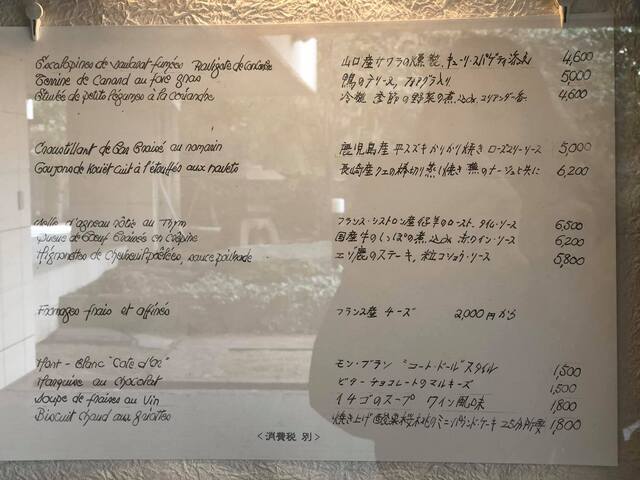 Escalopines de sawara fumées, Spaghetti de concombre 山口産サワラの燻製、キューリ・スパゲティ添え 4,600
Terrine de Canard au foie gras 鴨のテリーヌ、フォアグラ入り 5,000
Etuvée de petits légumes à la coriandre 冷製 季節の野菜の煮込み、コリアンダー風 4,600
Croustillant de Bar Braisé au romarin 鹿児島産 平スズキかりかり焼き ローズマリーソース 5,000
Goujons de Kouët cuit à l'étouffés aux navets 長崎産クエの棒切り蒸し焼き 蕪のナージュと共に 6,200
Selle d'agneau rôtie au Thym フランス・シストロン産仔羊のロースト、タイム・ソース 6,500
Queue de Bœuf Braisée en crépine 国産牛のしっぽの煮込み 赤ワイン・ソース 6,200
Mignonettes de Chevreuil poêlées, sauce poivrade エゾ鹿のステーキ、粒コショウ・ソース 5,800
Fromages frais et affinés フランス産 チーズ 2,000円から
Mont-Blanc "Cote d'Or" モン・ブラン "コート・ドール"スタイル 1,500
Marquise au Chocolat ビターチョコレートのマルキーズ 1,500
Soupe de fraises au Vin イチゴのスープ ワイン風味 1,800
Biscuit Chaud aux griottes 焼き上げ 酸味桜桃のミニパウンド・ケーキ 25分所要 1,800
＜消費税 別＞